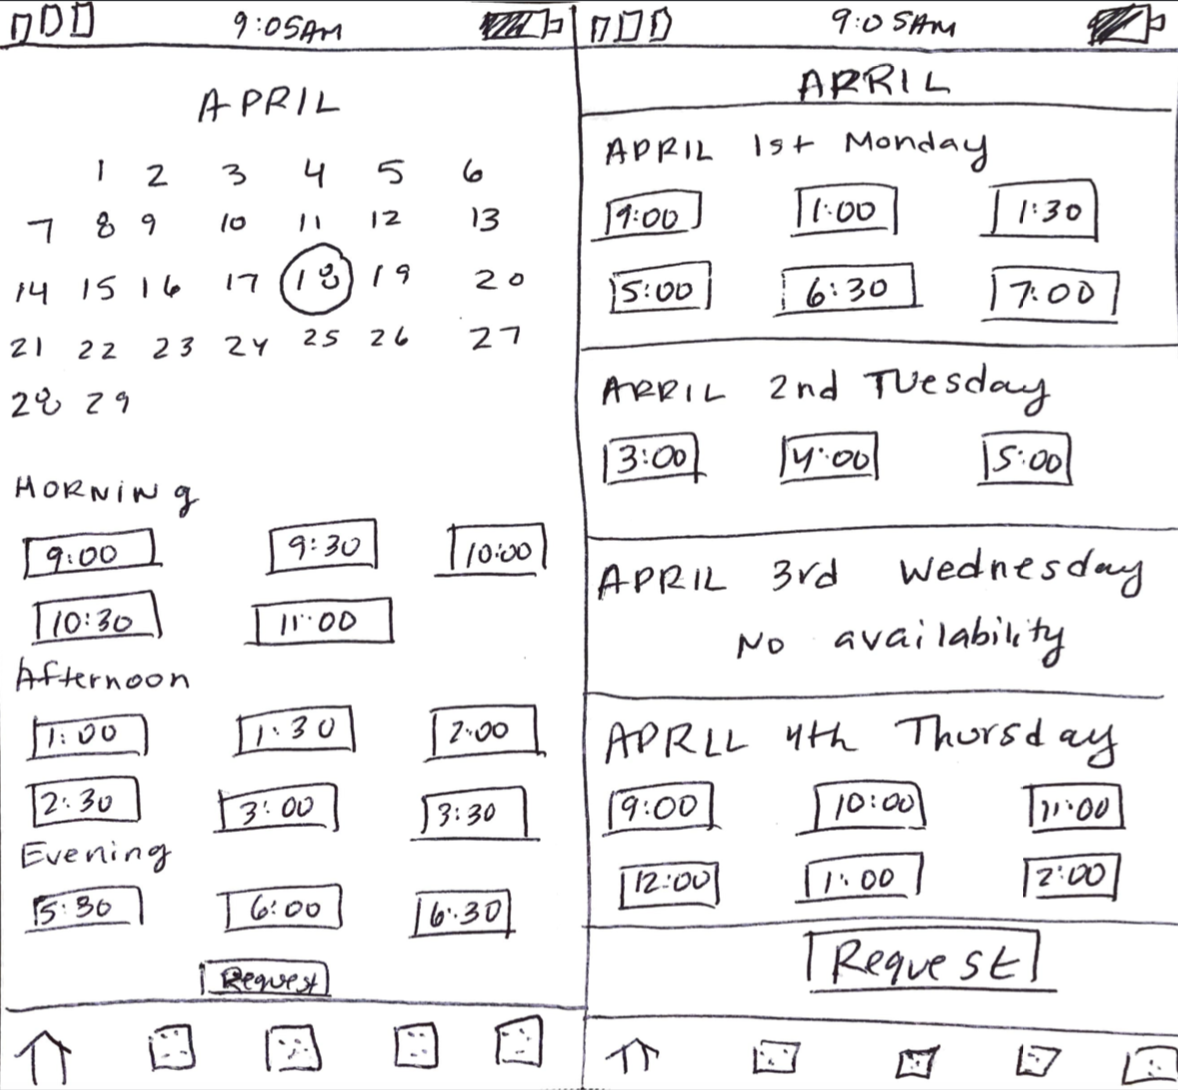 9:05AM
APRIL
1 2 3 4 5 6
7 8 9 10 11 12 13
14 15 16 17 18 19 20
21 22 23 24 25 26 27
28 29
MORNiNg
9:00 9:30 10:00
10:30 11:00
Afternoon
1:00 1:30 2:00
2:30 3:00 3:30
Evening
5:30 6:00 6:30
Request
9:05AM
APRIL
APRIL 1st Monday
9:00 1:00 1:30
5:00 6:30 7:00
APRIL 2nd TUesday
3:00 4:00 5:00
APRIL 3rd Wednesday
No availability
APRIL 4th Thursday
9:00 10:00 11:00
12:00 1:00 2:00
Request